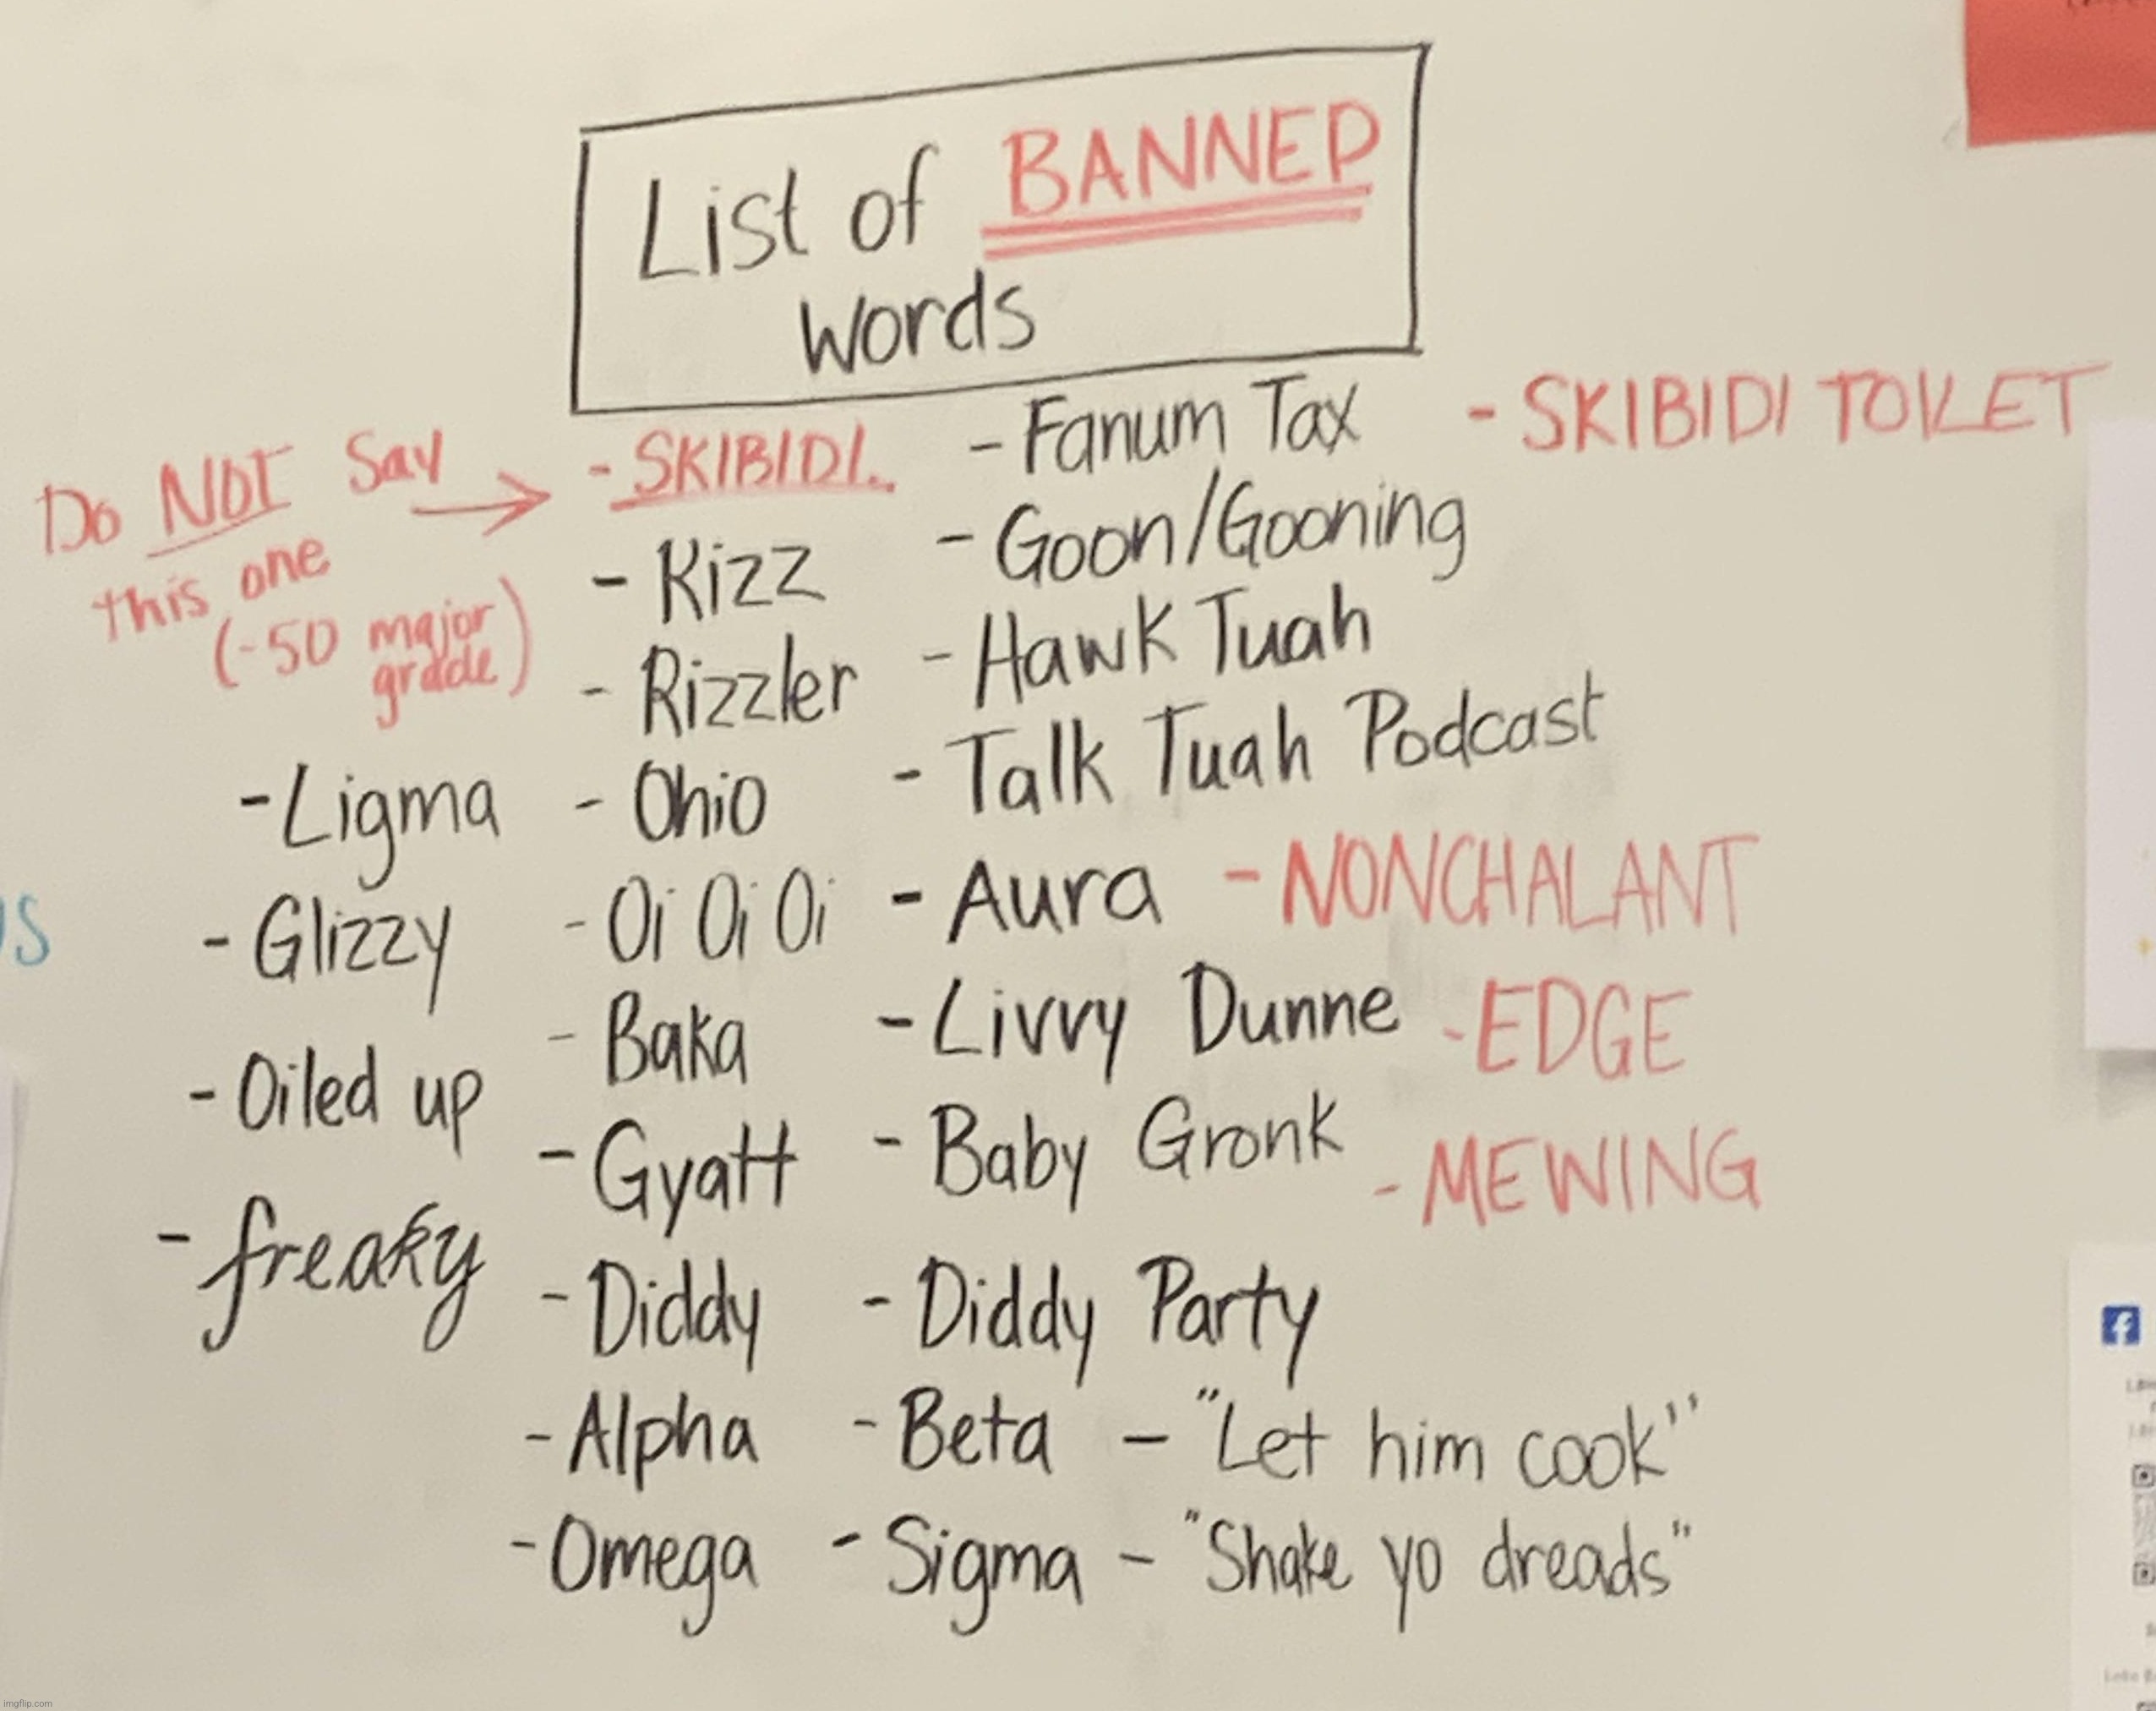 List of BANNED
words
Do NOT Say
this one
(-50 major
grade)
- Ligma
- Glizzy
- Oiled up
- freaky
- SKIBIDI
- Rizz
- Rizzler
- Ohio
- Oi Oi Oi
- Baka
- Gyatt
- Diddy
- Alpha
- Omega
- Fanum Tax
- Goon/Gooning
- Hawk Tuah
- Talk Tuah Podcast
- Aura
- Livvy Dunne
- Baby Gronk
- Diddy Party
- Beta
- Sigma
- SKIBIDI TOILET
- NONCHALANT
- EDGE
- MEWING
- "Let him cook"
- "Shake yo dreads"
imgflip.com